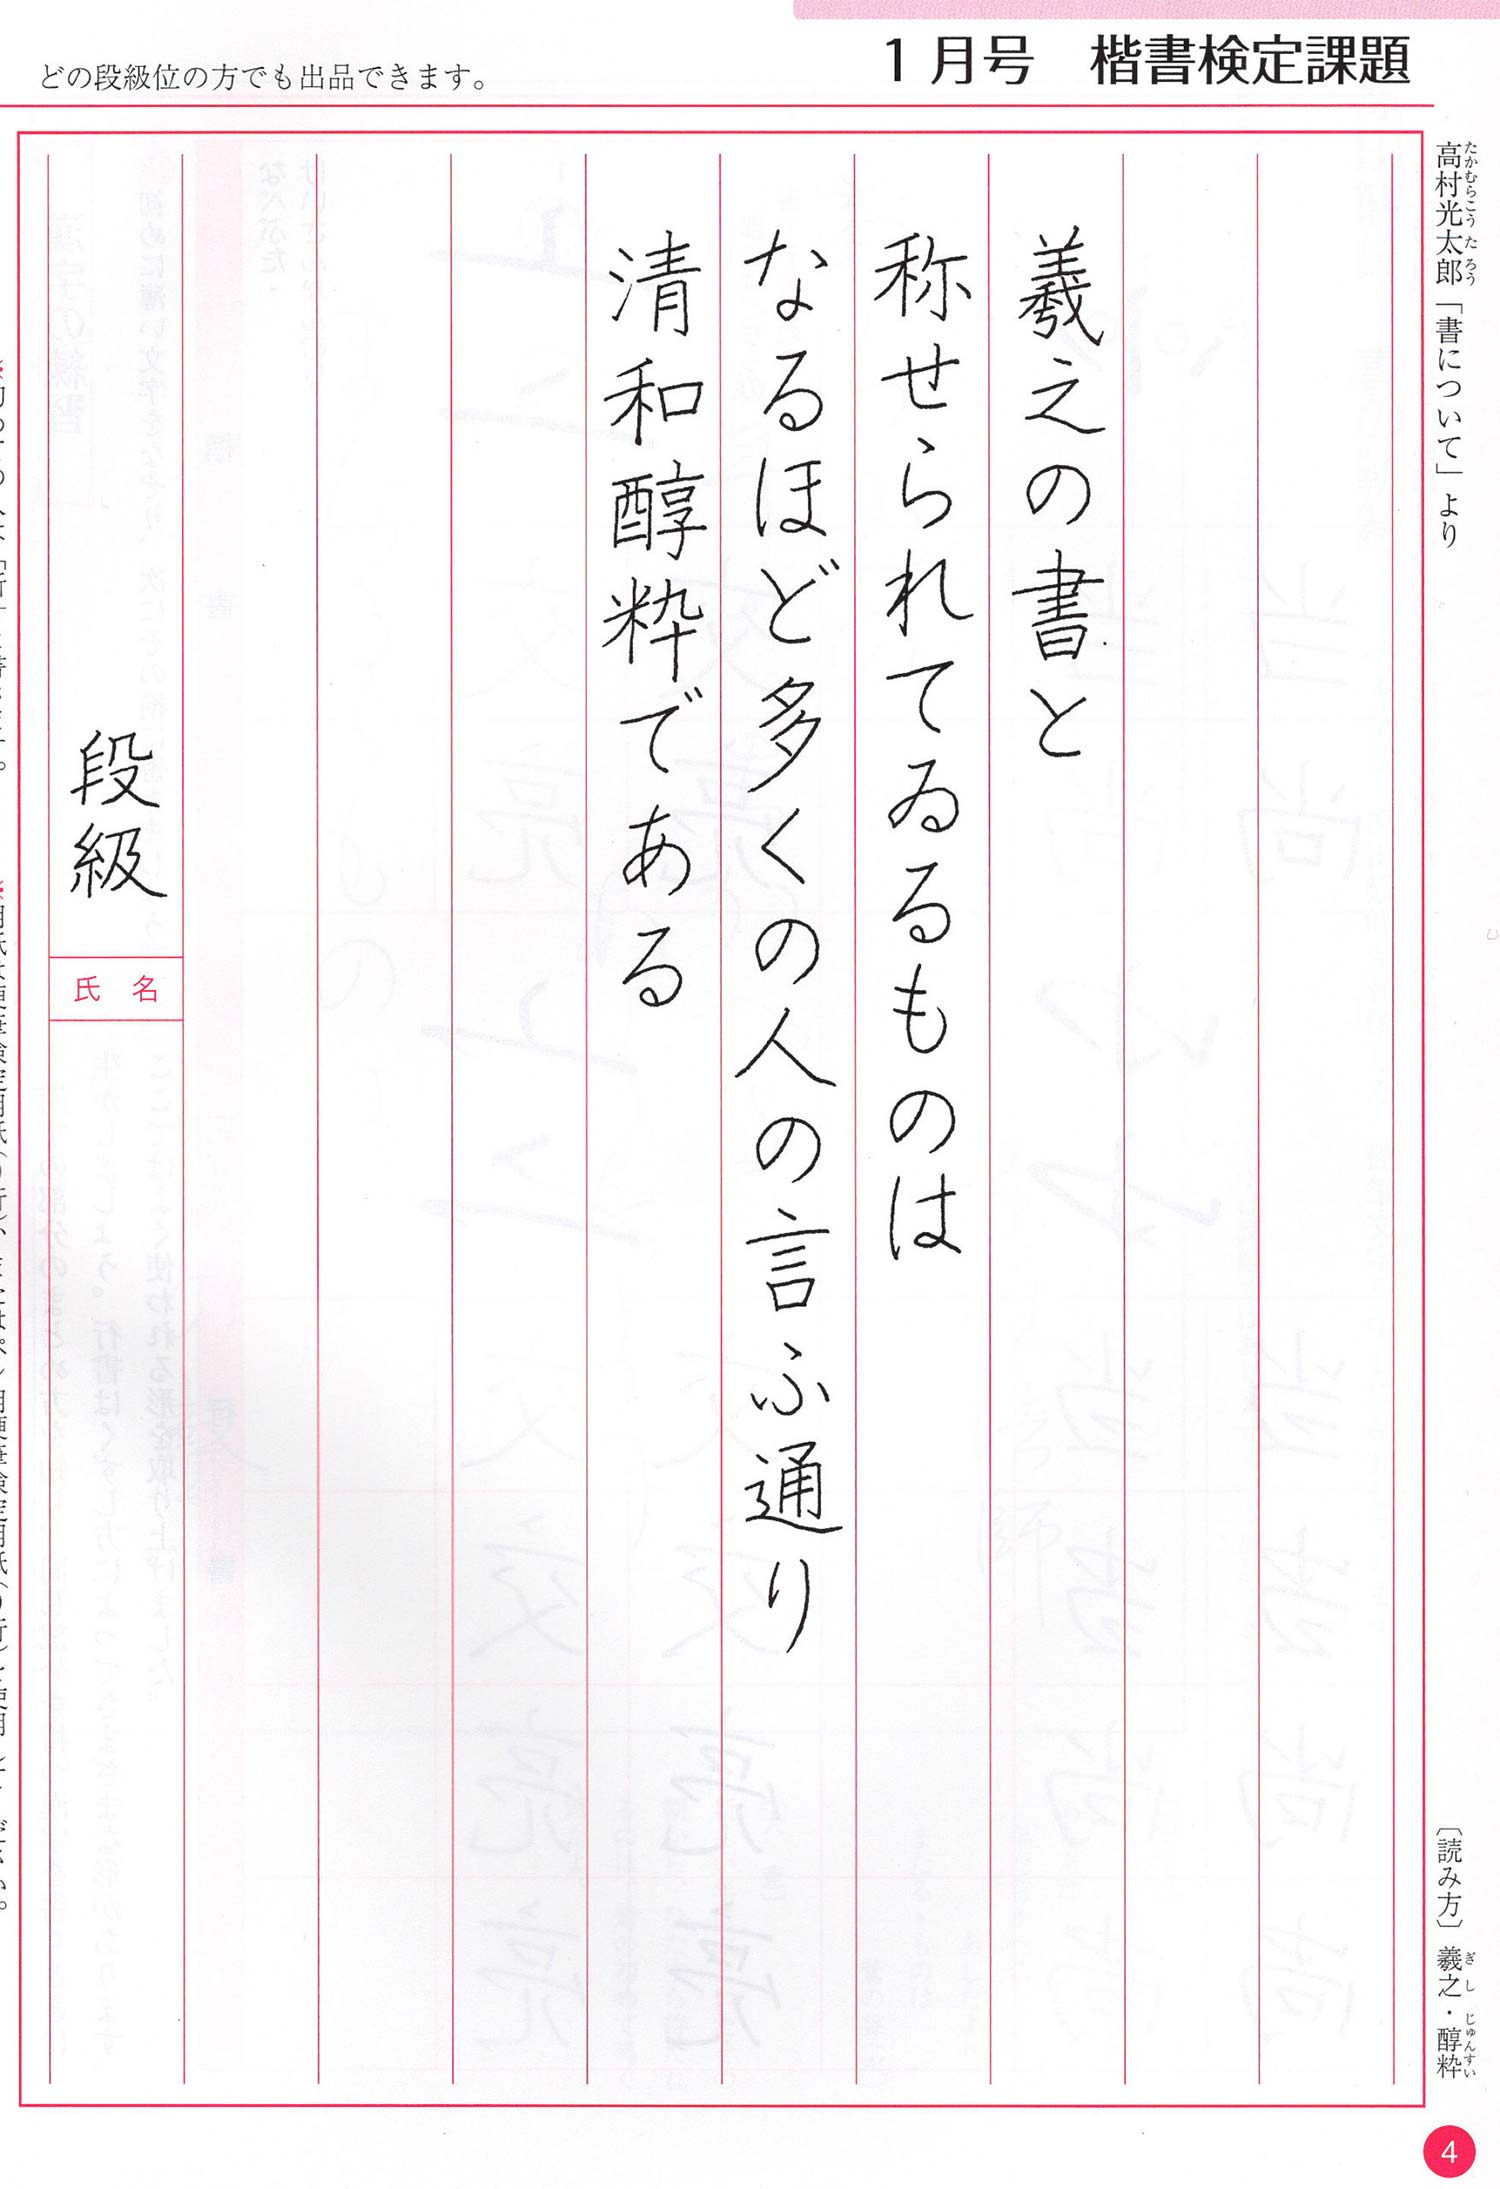 1月号　楷書検定課題
どの段級位の方でも出品できます。
高村光太郎「書について」より
たかむらこうたろう
羲之の書と
称せられてゐるものは
なるほど多くの人の言ふ通り
清和醇粋である
段級
氏名
〔読み方〕羲之・醇粋
ぎし じゅんすい
4